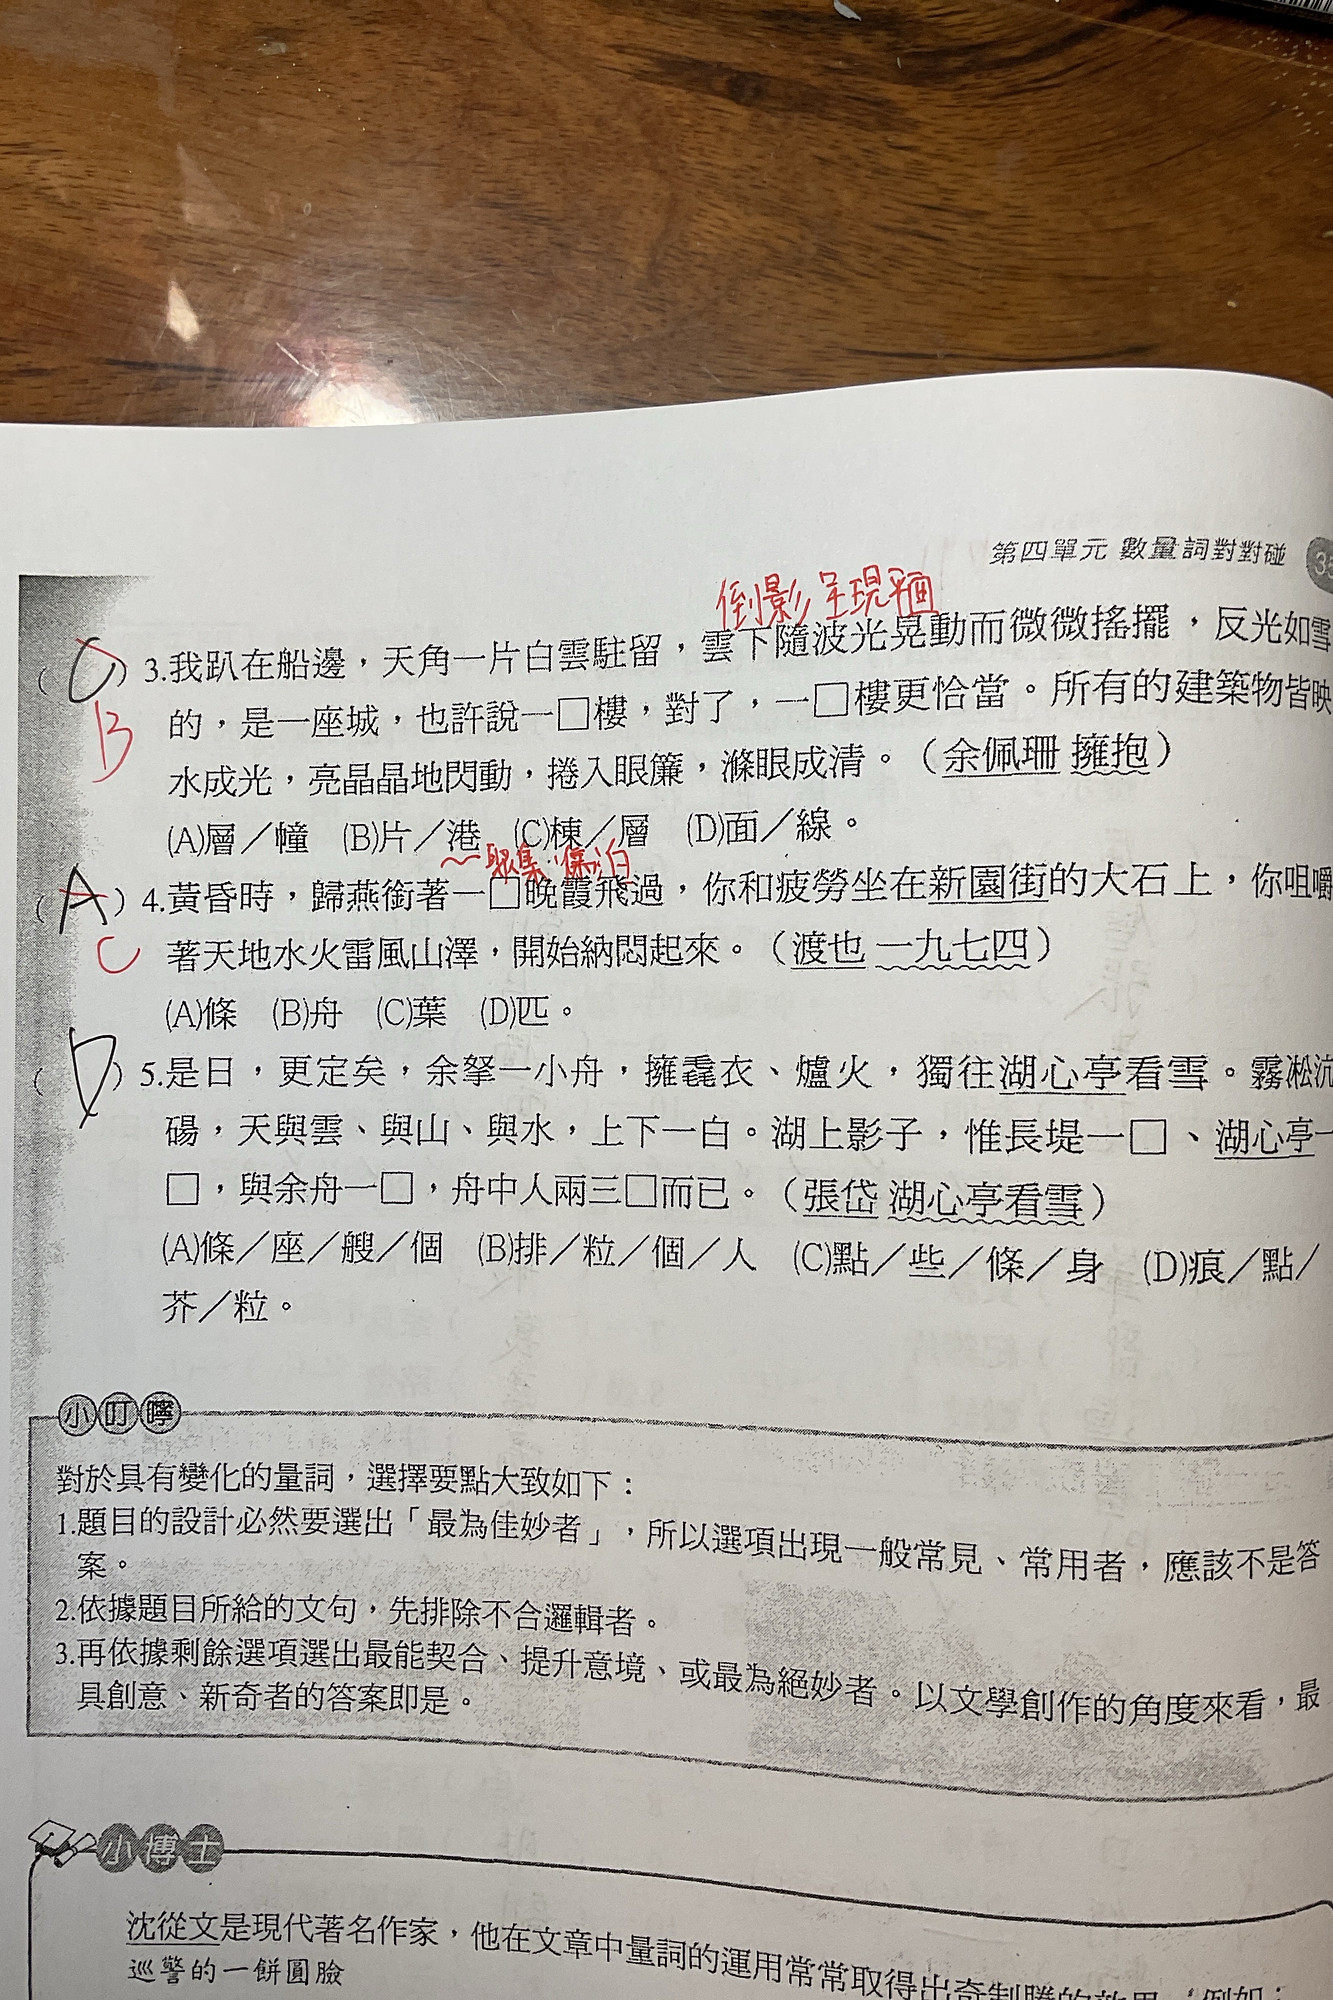 第四單元 數量詞對對碰 35
倒影呈現平面
(C) 3.我趴在船邊，天角一片白雲駐留，雲下隨波光晃動而微微搖擺，反光如雪
B
的，是一座城，也許說一□樓，對了，一□樓更恰當。所有的建築物皆映
水成光，亮晶晶地閃動，捲入眼簾，滌眼成清。（余佩珊 擁抱）
(A)層／幢 (B)片／港 (C)棟／層 (D)面／線。
～聚集、停泊
(A) 4.黃昏時，歸燕銜著一□晚霞飛過，你和疲勞坐在新園街的大石上，你咀嚼
C
著天地水火雷風山澤，開始納悶起來。（渡也 一九七四）
(A)條 (B)舟 (C)葉 (D)匹。
(D) 5.是日，更定矣，余拏一小舟，擁毳衣、爐火，獨往湖心亭看雪。霧凇沆
碭，天與雲、與山、與水，上下一白。湖上影子，惟長堤一□、湖心亭一
□，與余舟一□，舟中人兩三□而已。（張岱 湖心亭看雪）
(A)條／座／艘／個 (B)排／粒／個／人 (C)點／些／條／身 (D)痕／點／
芥／粒。
小叮嚀
對於具有變化的量詞，選擇要點大致如下：
1.題目的設計必然要選出「最為佳妙者」，所以選項出現一般常見、常用者，應該不是答
案。
2.依據題目所給的文句，先排除不合邏輯者。
3.再依據剩餘選項選出最能契合、提升意境、或最為絕妙者。以文學創作的角度來看，最
具創意、新奇者的答案即是。
小博士
沈從文是現代著名作家，他在文章中量詞的運用常常取得出奇制勝的效果，例如：
巡警的一餅圓臉